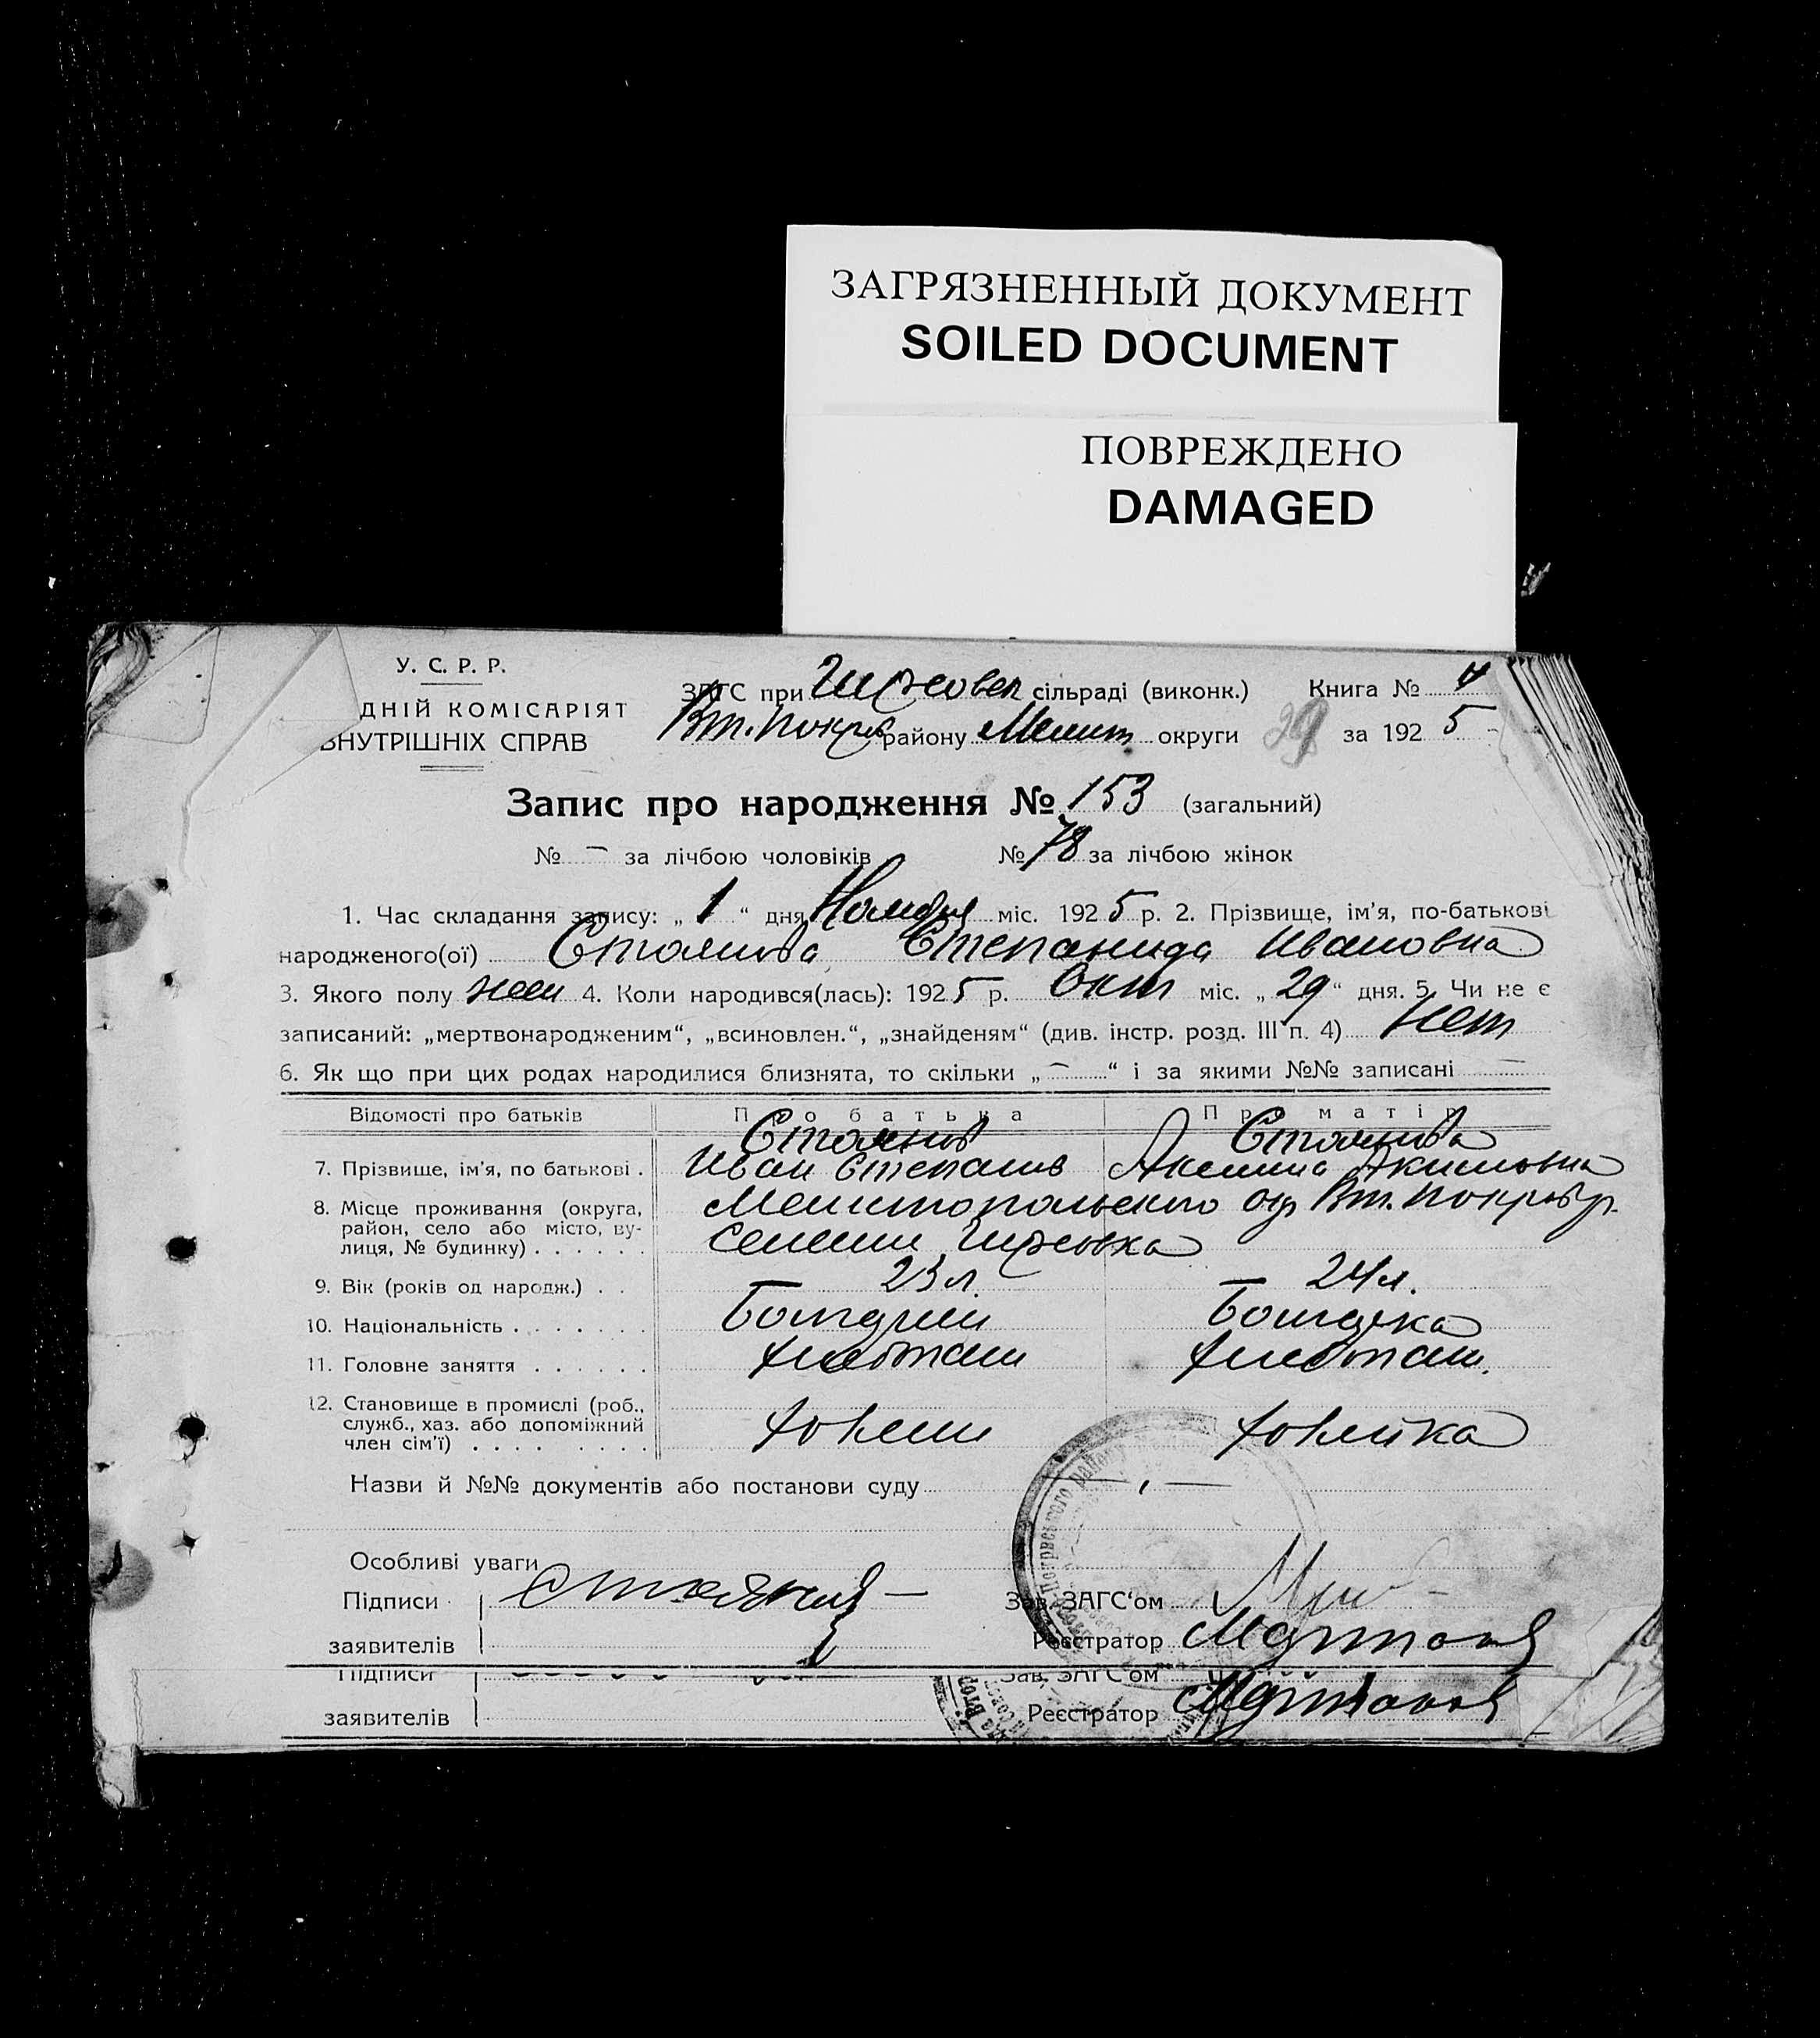 ЗАГРЯЗНЕННЫЙ ДОКУМЕНТ
SOILED DOCUMENT
ПОВРЕЖДЕНО
DAMAGED
У. С. Р. Р.
ДНІЙ КОМІСАРІЯТ
ВНУТРІШНІХ СПРАВ
ЗАГС при сільраді (виконк.) Книга № 4
Вт. Покров району Мелит округи 29 за 1925
Запис про народження № 153 (загальний)
№ – за лічбою чоловіків № 78 за лічбою жінок
1. Час складання запису: „ 1 “ дня Ноября міс. 1925 р. 2. Прізвище, ім'я, по-батькові
народженого(ої) Стоянова Степанида Ивановна
3. Якого полу жен 4. Коли народився(лась): 1925 р. Окт міс. „ 29 “ дня. 5. Чи не є
записаний: „мертвонародженим“, „всиновлен.“, „знайденям“ (див. інстр. розд. III п. 4) Нет
6. Як що при цих родах народилися близнята, то скільки „ – “ і за якими №№ записані –
Відомості про батьків Про батька Про матір
Стоянов Стоянова
7. Прізвище, ім'я, по батькові . Иван Степанов Акимовна
8. Місце проживання (округа, Мелитопольского окр Вт. Покров р.
район, село або місто, ву-
лиця, № будинку) . . . . . . Селении
9. Вік (років од народж.) . . 23 л. – 24 л.
10. Національність . . . . . . . Болгарин Болгарка
11. Головне заняття . . . . . . хлебопаш хлебопаш.
12. Становище в промислі (роб.,
служб., хаз. або допоміжний
член сім'ї) . . . . . . . . хозяин хозяйка
Назви й №№ документів або постанови суду
Особливі уваги
Підписи Зав. ЗАГС'ом
заявителів Реєстратор
Підписи Зав. ЗАГС'ом
заявителів Реєстратор